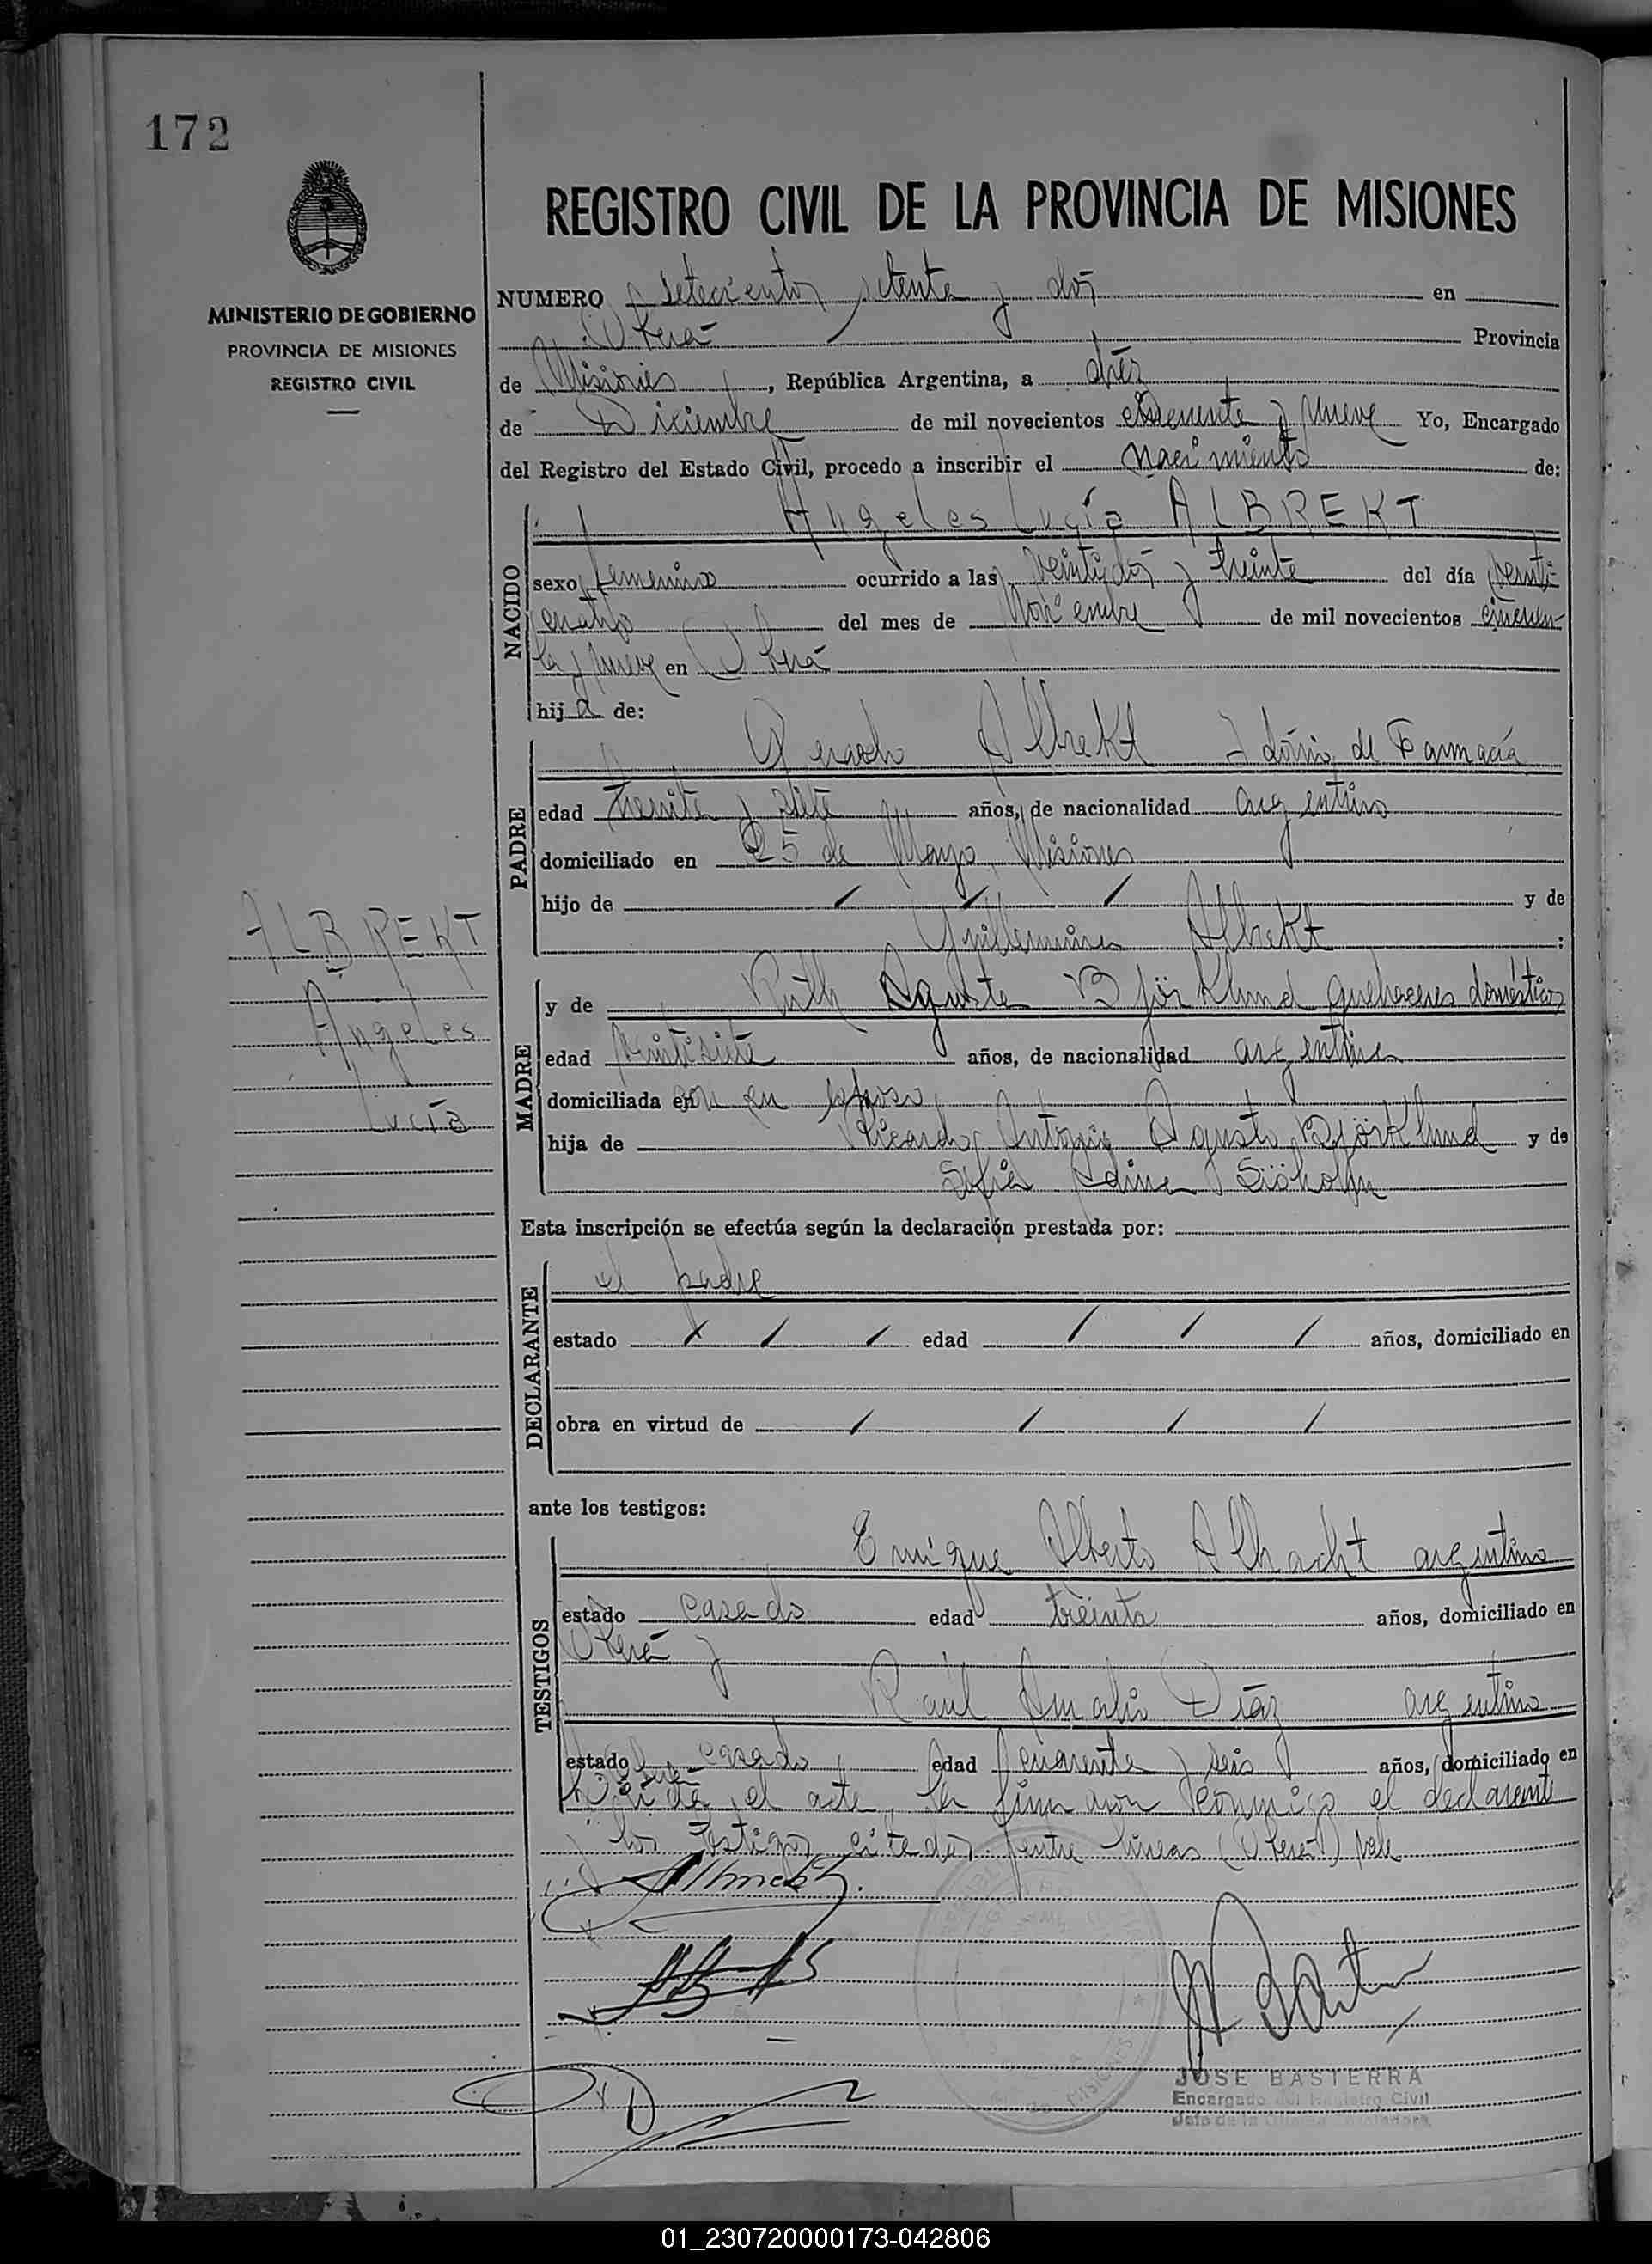 172
REGISTRO CIVIL DE LA PROVINCIA DE MISIONES
MINISTERIO DE GOBIERNO
PROVINCIA DE MISIONES
REGISTRO CIVIL
NUMERO setecientos setenta y dos en
Oberá Provincia
de Misiones, República Argentina, a diez
de Diciembre de mil novecientos cincuenta y nueve Yo, Encargado
del Registro del Estado Civil, procedo a inscribir el nacimiento de:
NACIDO
Angeles Lucía ALBREKT
sexo femenino ocurrido a las veintidós y treinta del día veinti
cuatro del mes de Noviembre de mil novecientos cincuen-
ta y nueve en Oberá
hija de:
PADRE
Albrekt Idóneo de Farmacia
edad treinta y siete años, de nacionalidad argentino
domiciliado en 25 de Mayo Misiones
hijo de / / / y de
Guillermina Albrekt :
ALBREKT
Angeles
Lucía
MADRE
y de Ruth Agusta Björklund quehaceres domésticos
edad veintisiete años, de nacionalidad argentina
domiciliada en su esposo
hija de Ricardo Antonio Agusto Björklund y de
Sofía Sjöholm
Esta inscripción se efectúa según la declaración prestada por:
DECLARANTE
el padre
estado / / / edad / / / años, domiciliado en
obra en virtud de / / / /
ante los testigos:
TESTIGOS
Enrique Alberto argentino
estado casado edad treinta años, domiciliado en
Oberá y
Raúl Díaz argentino
estado casado edad cuarenta y seis años, domiciliado en
el acta, la firmaron conmigo el declarante
y los testigos citados. entre líneas (Oberá) vale
JOSE BASTERRA
Encargado del Registro Civil
MISIONES
01_230720000173-042806